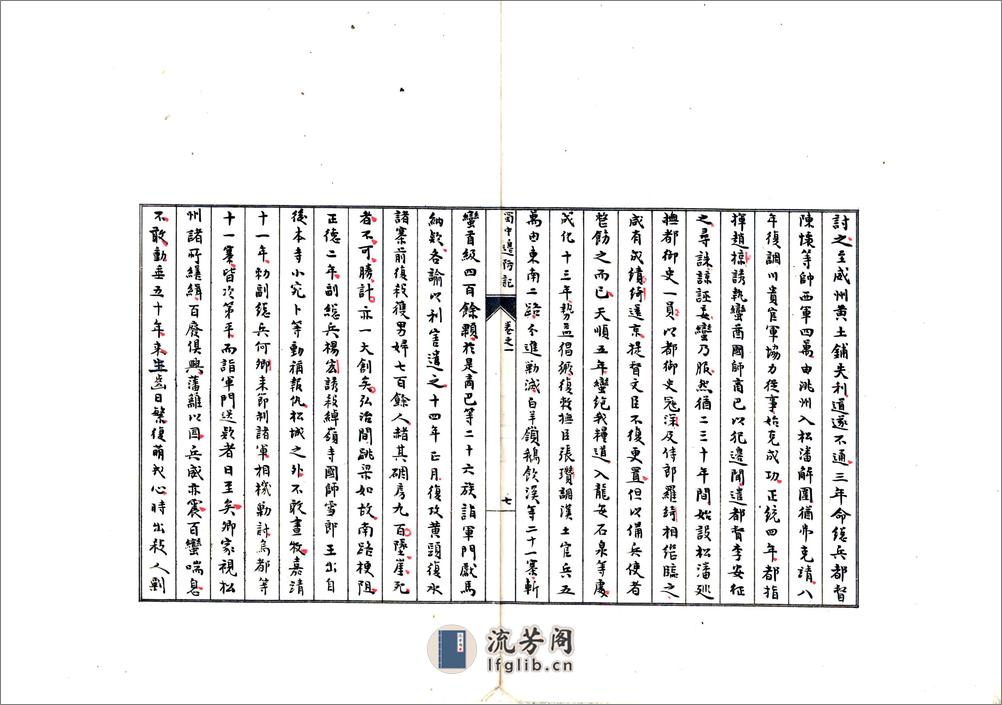 討之至威州黄土鋪失利道遂不通三年命總兵都督
陳懷等帥西軍四萬由洮州入松潘解圍猶弗克靖八
年復調川貴官軍協力從事始克成功正統四年都指
揮趙諒誘執蠻酋國師商巴以犯邊聞遣都督李安征
之尋誅諒誣妄蠻乃服然猶二三十年間始設松潘巡
撫都御史一員以都御史寇深及侍郎羅綺相繼臨之
咸有成績綺還京提督文臣不復更置但以備兵使者
整飭之而已天順五年蠻絶我糧道入龍安石泉等處
成化十三年勢益猖獗復敕撫臣張瓚調漢土官兵五
萬由東南二路分進勦滅白羊嶺鵝飲溪等二十一寨斬
蜀中邊防記 卷之一 七
蠻首級四百餘顆於是商巴等二十六族詣軍門獻馬
納欵各諭以利害遣之十四年正月復攻黄頭復水
諸寨前復殺獲男婦七百餘人赭其碉房九百墜崖死
者不可勝計亦一大創矣弘治間跳梁如故南路梗阻
正德二年副總兵楊宏誘殺綽嶺寺國師雪郎王出自
後本寺小完卜等動稱報仇松城之外不敢晝牧嘉靖
十一年勅副總兵何卿来節制諸軍相機勦討烏都等
十一寨皆次第平而詣軍門送欵者日至矣卿家視松
州諸所繕緝百廢俱興藩籬以固兵威亦震百蠻喘息
不敢動垂五十年来生齒日繁復萌我心時出殺人剽
流芳阁
lfglib.cn